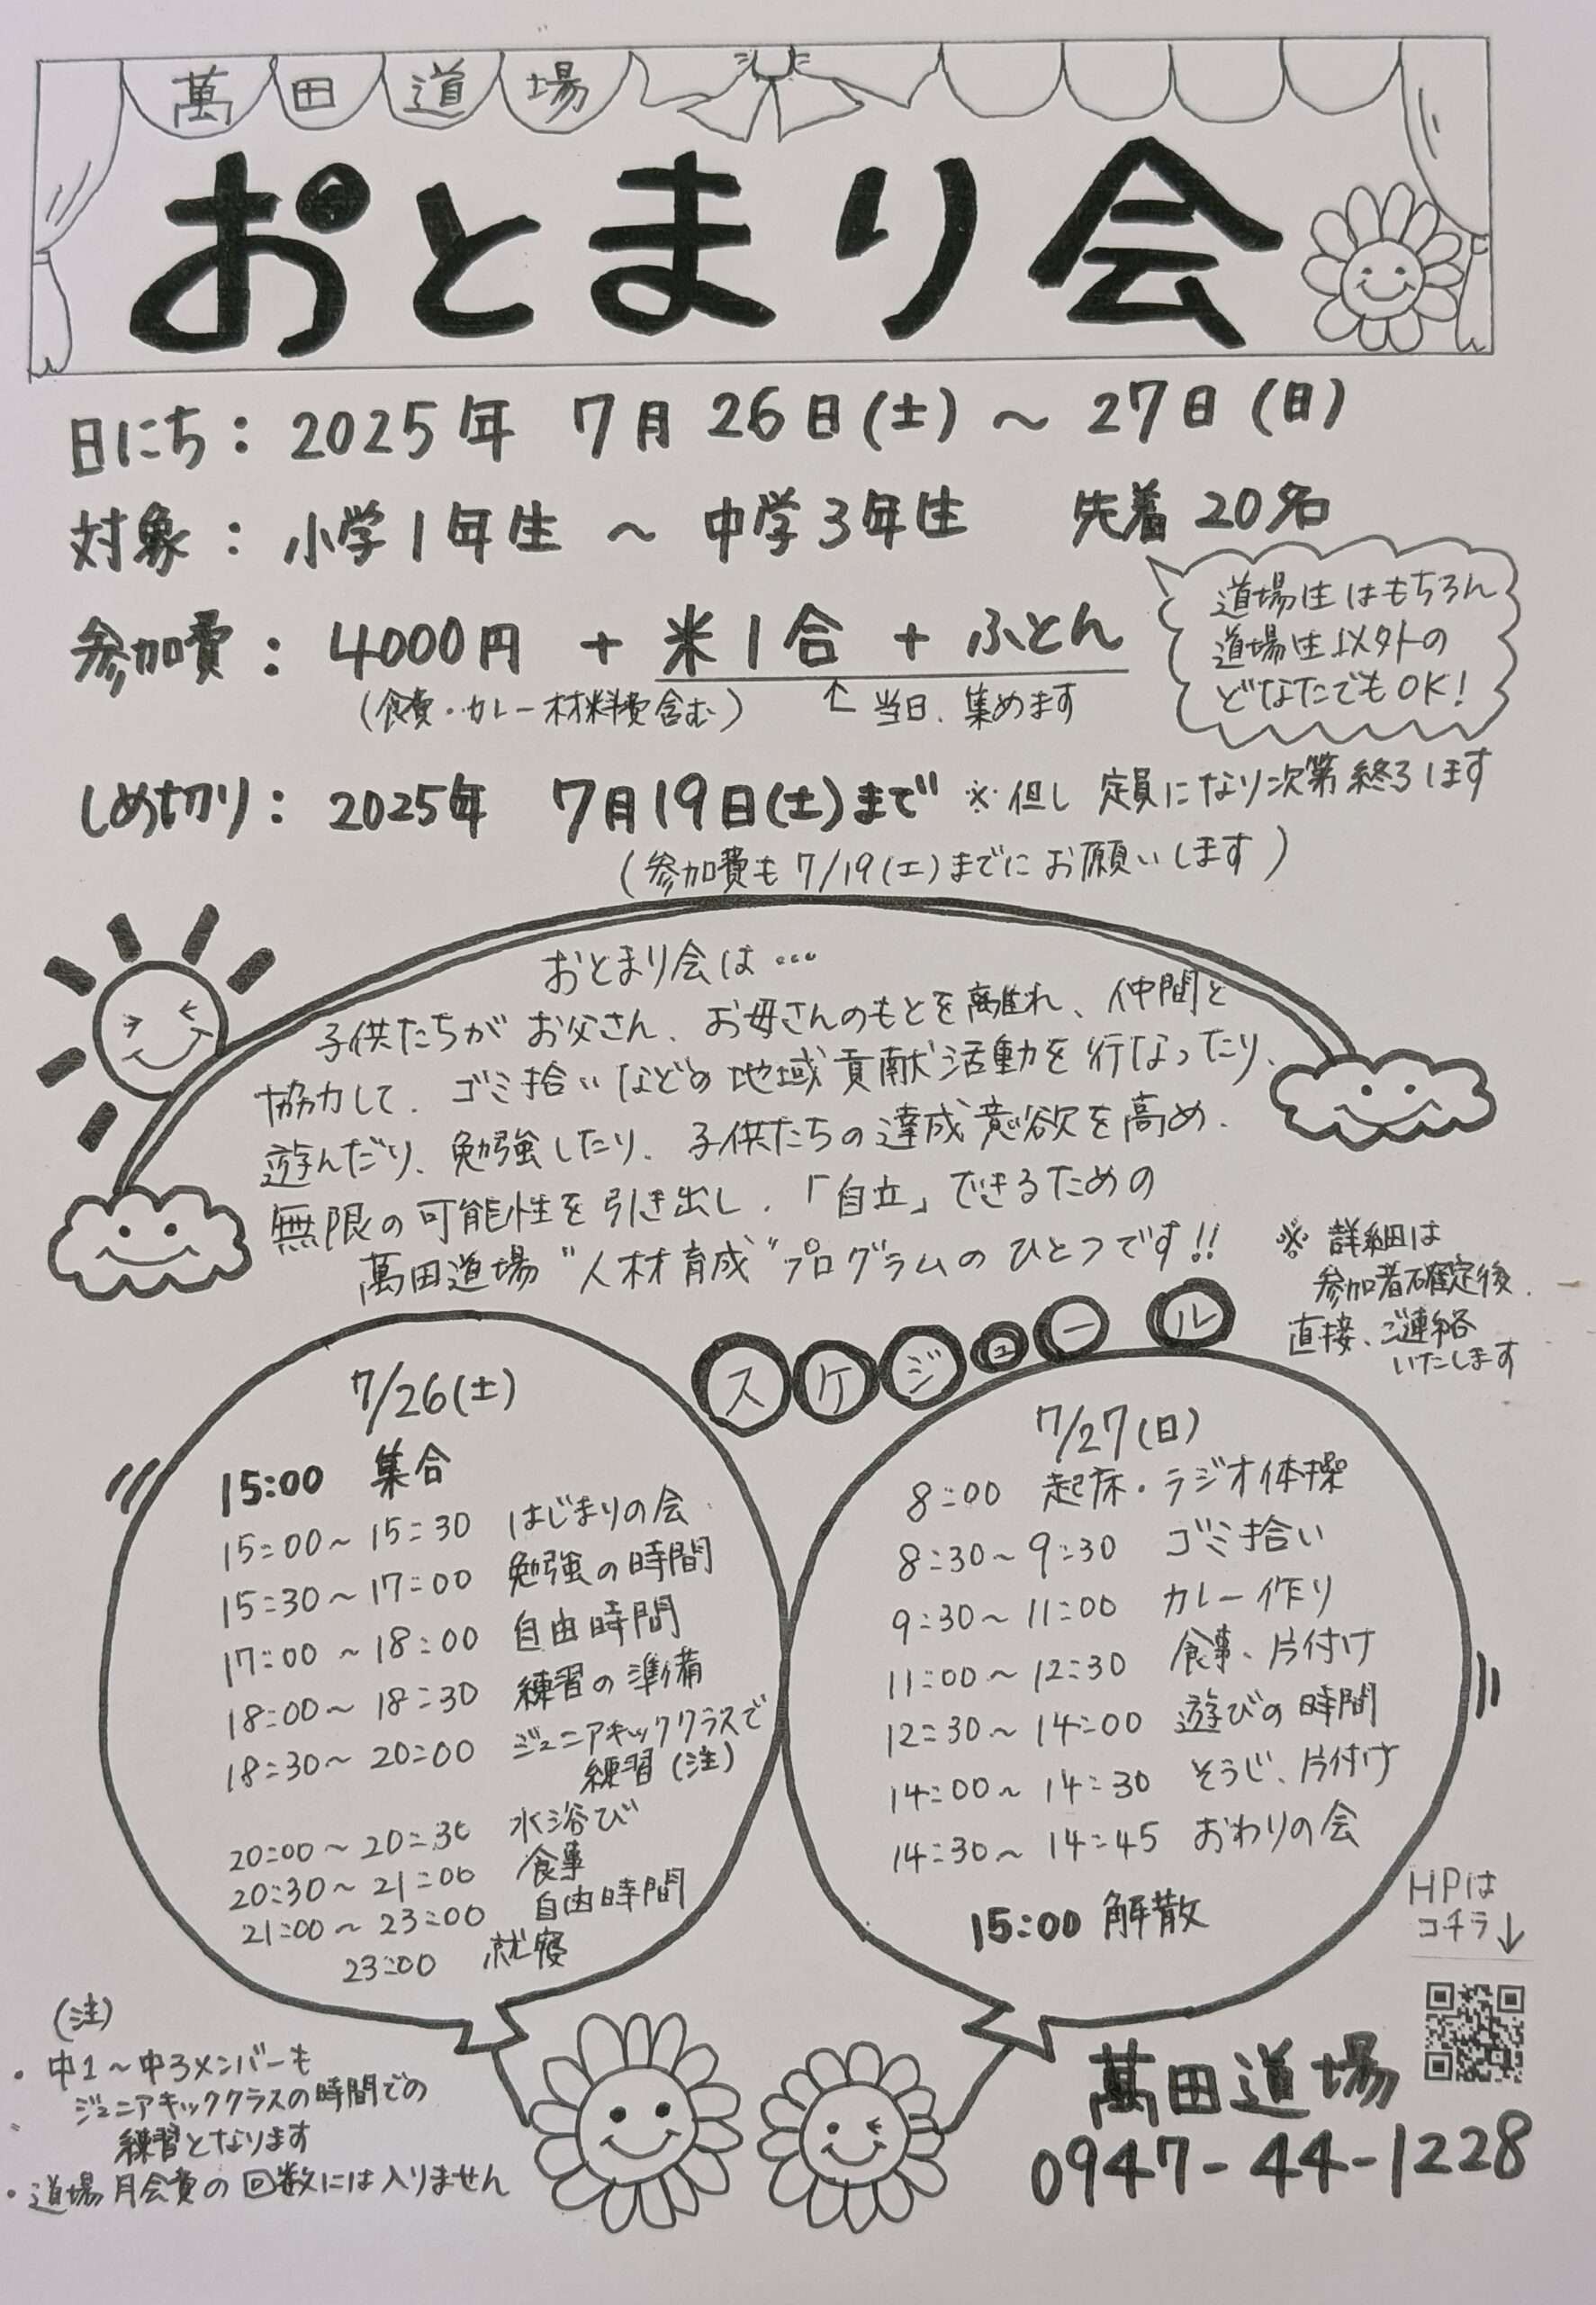 萬田道場
おとまり会
日にち：2025年 7月26日(土)～27日(日)
対象：小学1年生～中学3年生 先着20名
道場生はもちろん
道場生以外の
どなたでもOK！
参加費：4000円＋米1合＋ふとん
(食費・カレー材料費含む)
↑当日、集めます
しめ切り：2025年 7月19日(土)まで ※但し 定員になり次第終了します
(参加費も7/19(土)までにお願いします)
おとまり会は…
子供たちがお父さん、お母さんのもとを離れ、仲間と
協力して、ゴミ拾いなどの地域貢献活動を行なったり、
遊んだり、勉強したり、子供たちの達成意欲を高め、
無限の可能性を引き出し、「自立」できるための
萬田道場“人材育成”プログラムのひとつです!!
※詳細は
参加者確定後、
直接、ご連絡
いたします
スケジュール
7/26(土)
15:00 集合
15:00～15:30 はじまりの会
15:30～17:00 勉強の時間
17:00～18:00 自由時間
18:00～18:30 練習の準備
18:30～20:00 ジュニアキッククラスで
練習(注)
20:00～20:30 水浴び
20:30～21:00 食事
21:00～23:00 自由時間
23:00 就寝
7/27(日)
8:00 起床・ラジオ体操
8:30～9:30 ゴミ拾い
9:30～11:00 カレー作り
11:00～12:30 食事、片付け
12:30～14:00 遊びの時間
14:00～14:30 そうじ、片付け
14:30～14:45 おわりの会
15:00 解散
HPは
コチラ↓
(注)
・中1～中3メンバーも
ジュニアキッククラスの時間での
練習となります
・道場月会費の回数には入りません
萬田道場
0947-44-1228